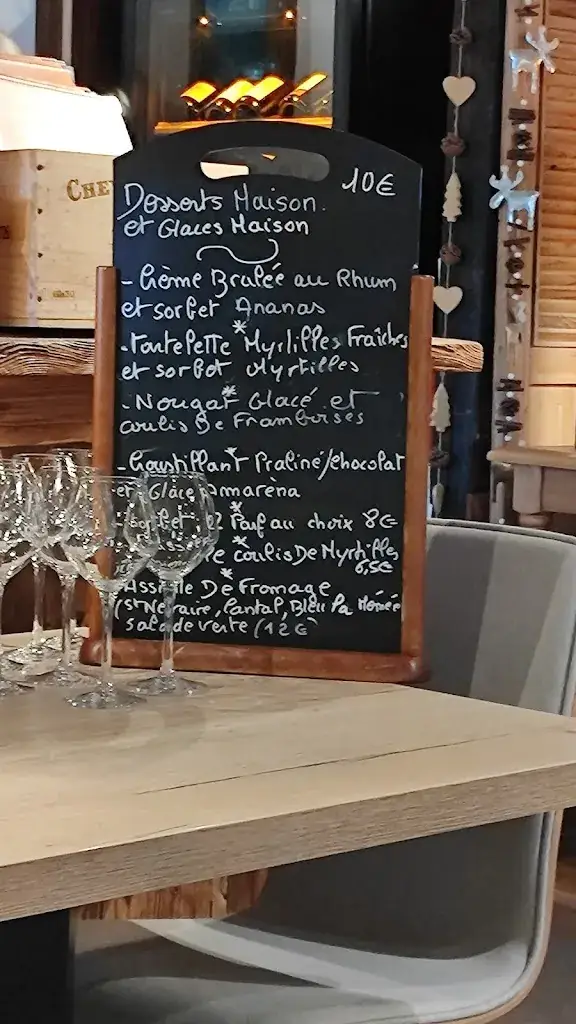 10€
Desserts Maison.
et Glaces Maison
- Crème Brulée au Rhum
et sorbet Ananas
- Tartelette Myrtilles Fraîches
et sorbet Myrtilles
- Nougat Glacé et
coulis De Framboises
- Croustillant Praliné/chocolat
et Glace Amaréna
- sorbet, 2 Parf au choix 8€
coulis De Myrtilles
6,5€
Assiette De Fromage
(St Nectaire, Cantal, Bleu
salade verte (12€)
CHE